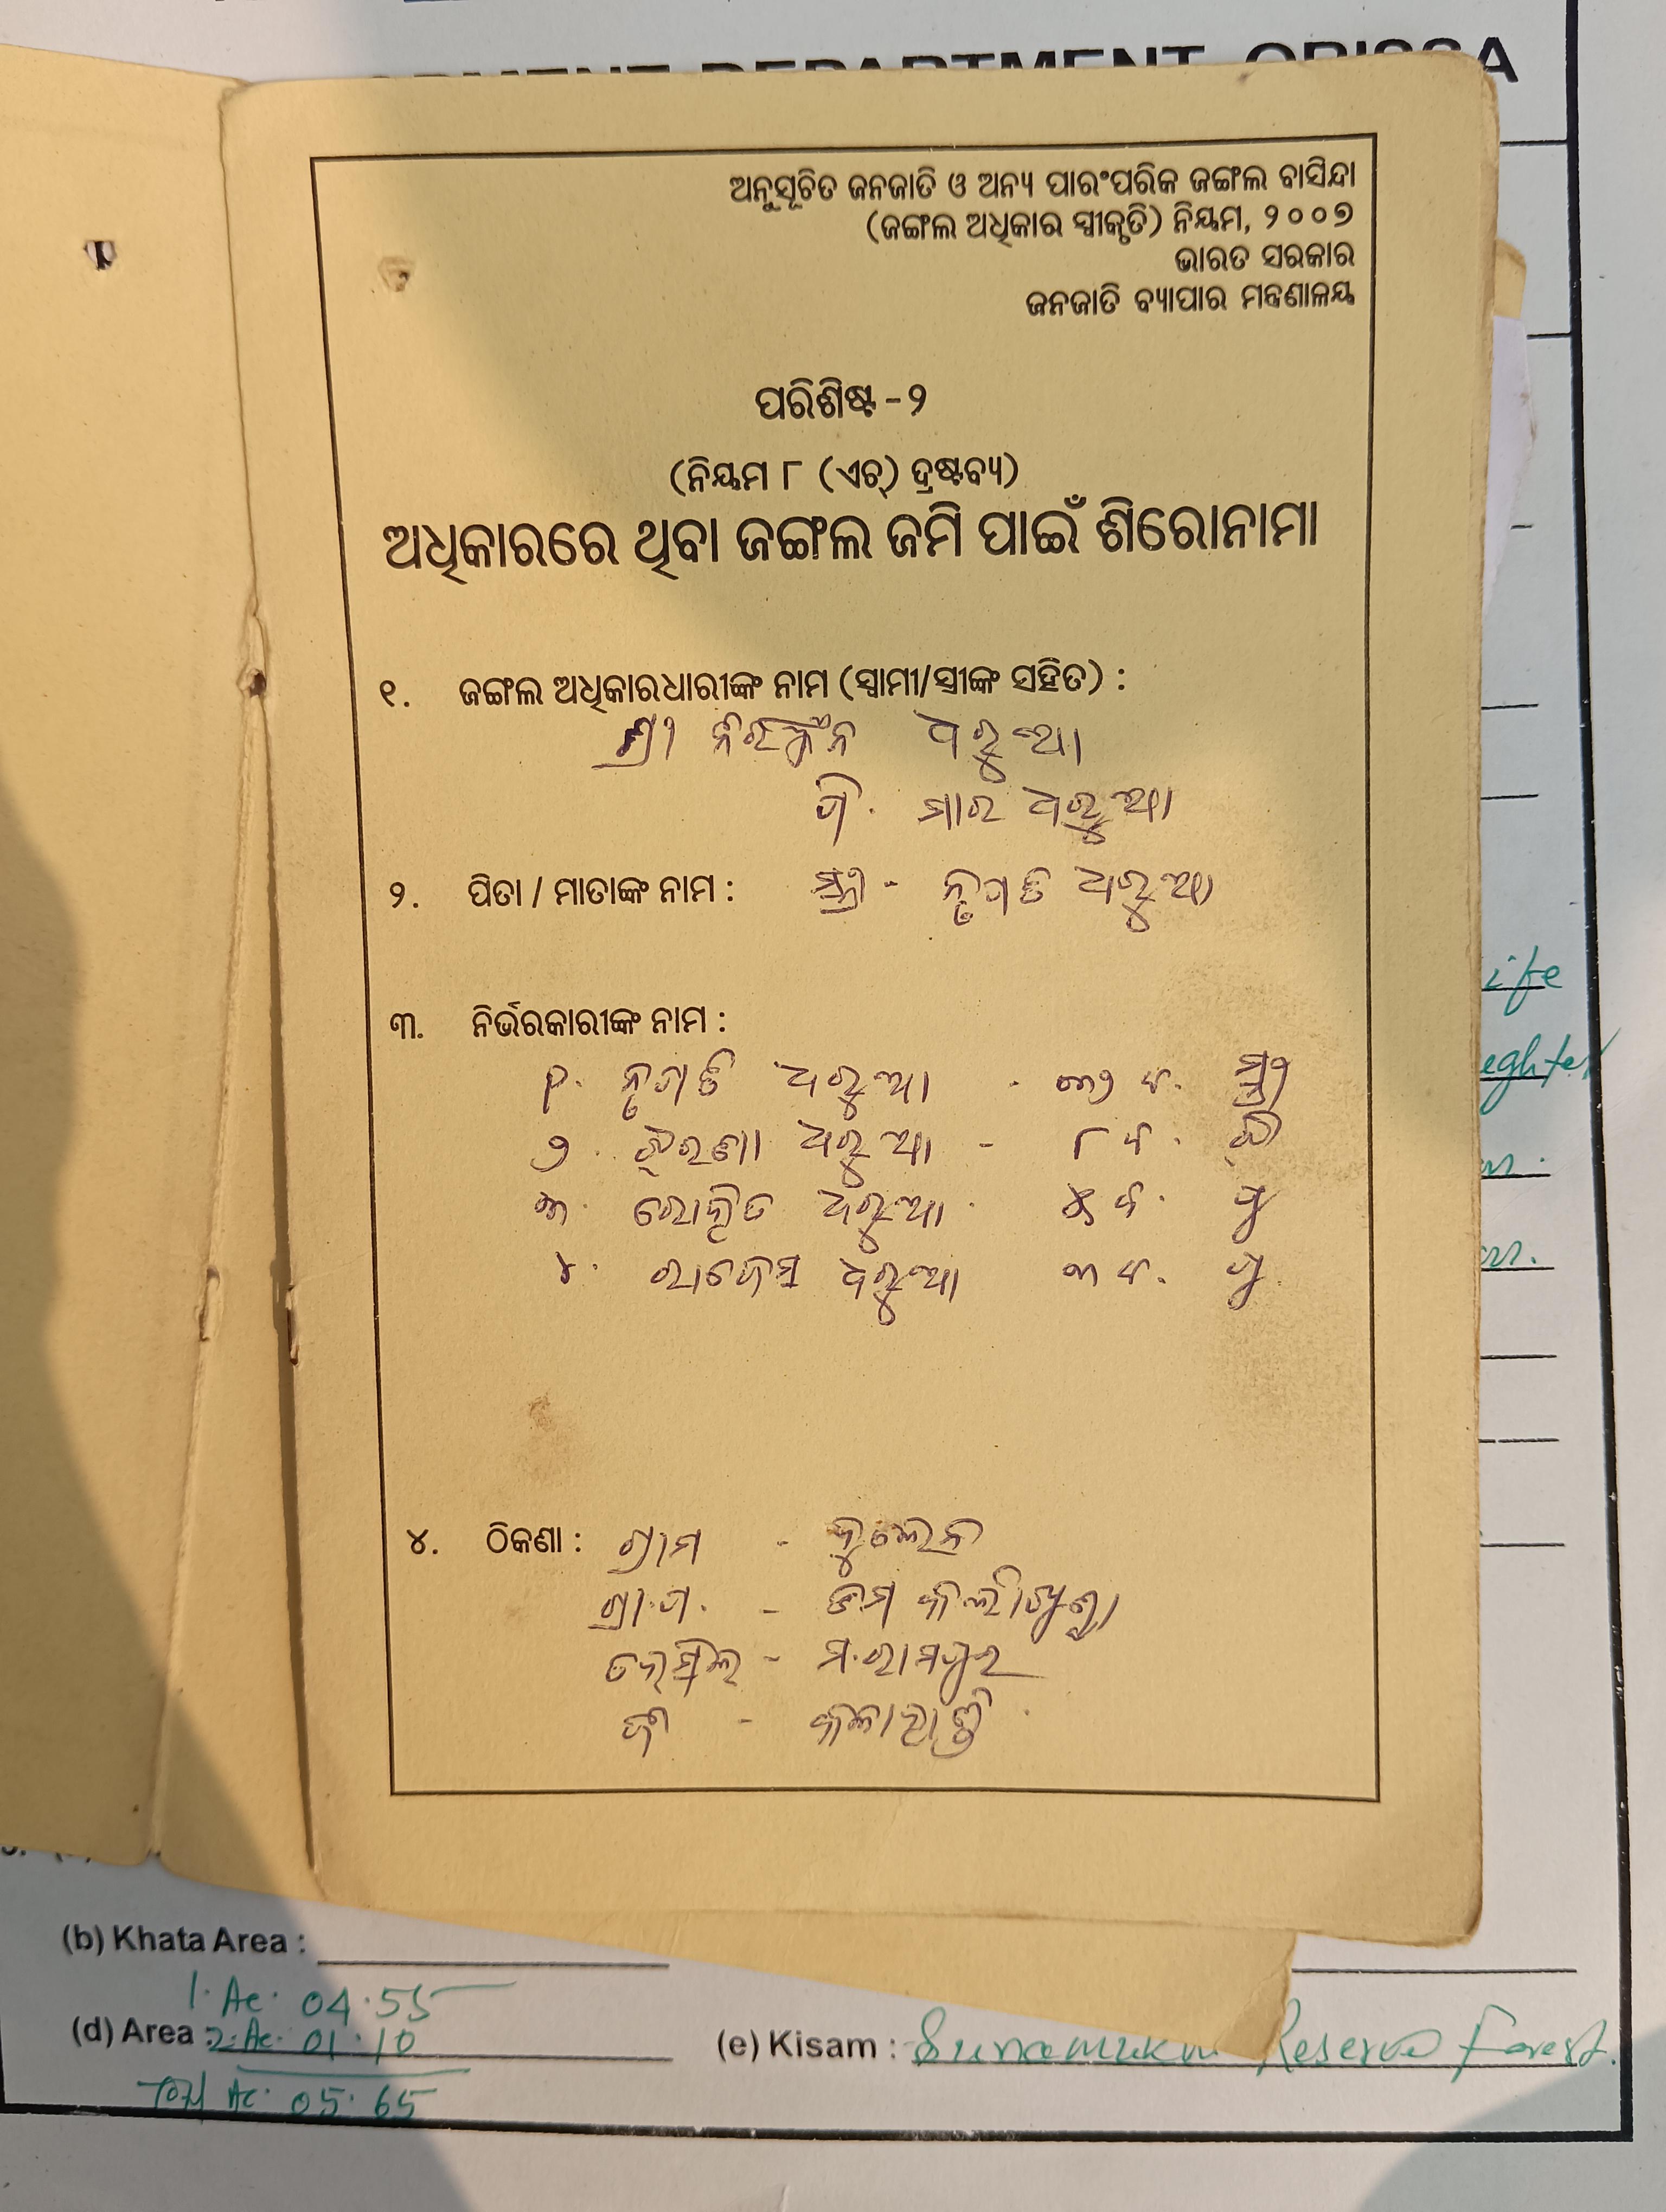 DEPARTMENT, ORISSA
ଅନୁସୂଚିତ ଜନଜାତି ଓ ଅନ୍ୟ ପାରଂପରିକ ଜଙ୍ଗଲ ବାସିନ୍ଦା
(ଜଙ୍ଗଲ ଅଧିକାର ସ୍ୱୀକୃତି) ନିୟମ, ୨୦୦୭
ଭାରତ ସରକାର
ଜନଜାତି ବ୍ୟାପାର ମନ୍ତ୍ରଣାଳୟ
ପରିଶିଷ୍ଟ - ୨
(ନିୟମ ୮ (ଏଚ୍) ଦ୍ରଷ୍ଟବ୍ୟ)
ଅଧିକାରରେ ଥିବା ଜଙ୍ଗଲ ଜମି ପାଇଁ ଶିରୋନାମା
୧. ଜଙ୍ଗଲ ଅଧିକାରଧାରୀଙ୍କ ନାମ (ସ୍ୱାମୀ/ସ୍ତ୍ରୀଙ୍କ ସହିତ) :
ଶ୍ରୀ ନିରଞ୍ଜନ ଧରୁଆ
ପି. ମାର ଧରୁଆ
୨. ପିତା / ମାତାଙ୍କ ନାମ : ସ୍ତ୍ରୀ - ଧରୁଆ
୩. ନିର୍ଭରକାରୀଙ୍କ ନାମ :
୧. ଧରୁଆ - ୩୨ ବ. ସ୍ତ୍ରୀ
୨. ଧରୁଆ - ୮ ବ. ଝି
୩. ରୋହିତ ଧରୁଆ ୫ ବ. ପୁ
୪. ରାଜେସ ଧରୁଆ ୩ ବ. ପୁ
୪. ଠିକଣା : ଗ୍ରାମ -
ଗ୍ରା.ପ. -
ତହସିଲ - ମ.ରାମପୁର
ଜି - କଳାହାଣ୍ଡି
(b) Khata Area :
1. Ac. 04.55
(d) Area : 2. Ac. 01.10
Total Ac. 05.65
(e) Kisam : Reserve Forest.